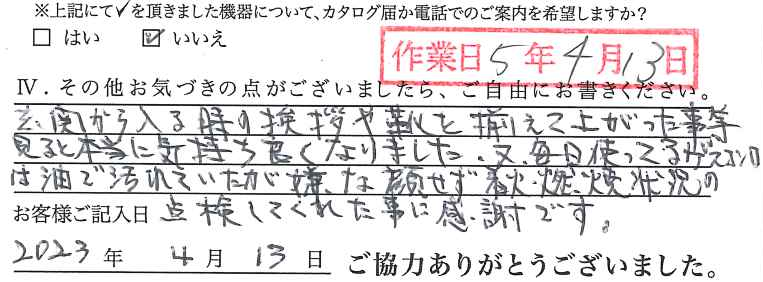 ※上記にて✓を頂きました機器について、カタログ届か電話でのご案内を希望しますか？
□ はい ☑ いいえ
作業日 5年4月13日
Ⅳ．その他お気づきの点がございましたら、ご自由にお書きください。
玄関から入る時の挨拶や靴を揃えて上がった事等
見ると本当に気持ち良くなりました。又、毎日使ってるガスコンロ
は油で汚れていたが嫌な顔せず 燃焼状況の
お客様ご記入日 点検してくれた事に感謝です。
2023 年 4 月 13 日 ご協力ありがとうございました。